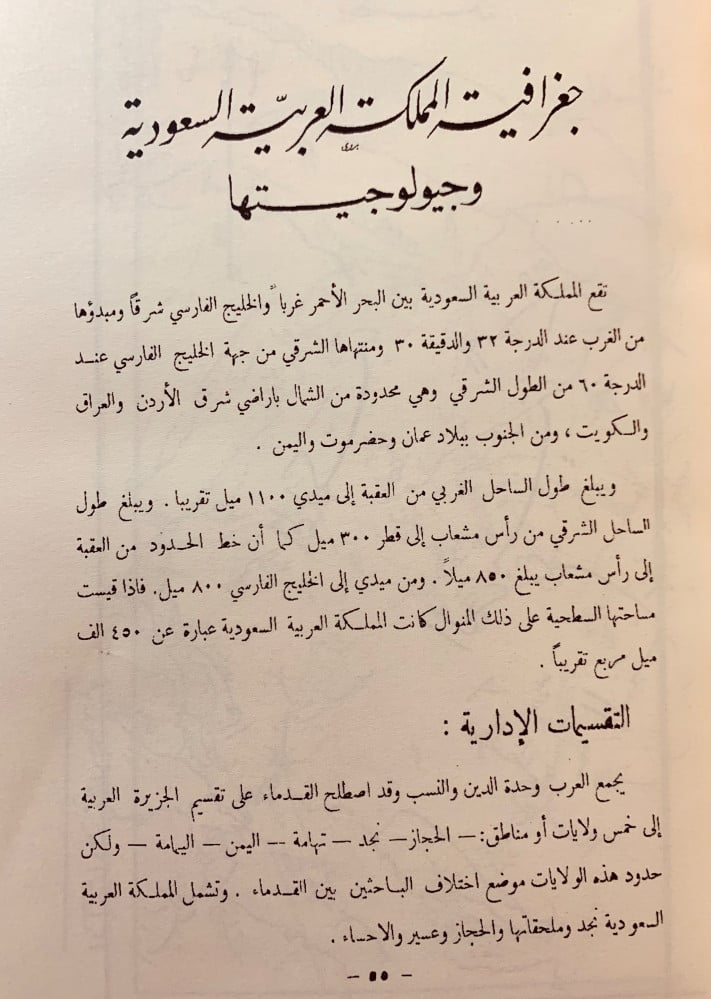 جغرافية المملكة العربيّة السعودية
وجيولوجيتها
تقع المملكة العربية السعودية بين البحر الأحمر غرباً والخليج الفارسي شرقاً ومبدؤها
من الغرب عند الدرجة ٣٢ والدقيقة ٣٠ ومنتهاها الشرقي من جهة الخليج الفارسي عند
الدرجة ٦٠ من الطول الشرقي وهي محدودة من الشمال باراضي شرق الأردن والعراق
والكويت ، ومن الجنوب ببلاد عمان وحضرموت واليمن .
ويبلغ طول الساحل الغربي من العقبة إلى ميدي ١١٠٠ ميل تقريبا . ويبلغ طول
الساحل الشرقي من رأس مشعاب إلى قطر ٣٠٠ ميل كما أن خط الحدود من العقبة
إلى رأس مشعاب يبلغ ٨٥٠ ميلاً . ومن ميدي إلى الخليج الفارسي ٨٠٠ ميل. فاذا قيست
مساحتها السطحية على ذلك المنوال كانت المملكة العربية السعودية عبارة عن ٤٥٠ الف
ميل مربع تقريباً .
التقسيمات الإدارية :
يجمع العرب وحدة الدين والنسب وقد اصطلح القدماء على تقسيم الجزيرة العربية
إلى خمس ولايات أو مناطق: — الحجاز — نجد — تهامة — اليمن — اليمامة — ولكن
حدود هذه الولايات موضع اختلاف الباحثين بين القدماء . وتشمل المملكة العربية
السعودية نجد وملحقاتها والحجاز وعسير والاحساء .
— ٥٥ —